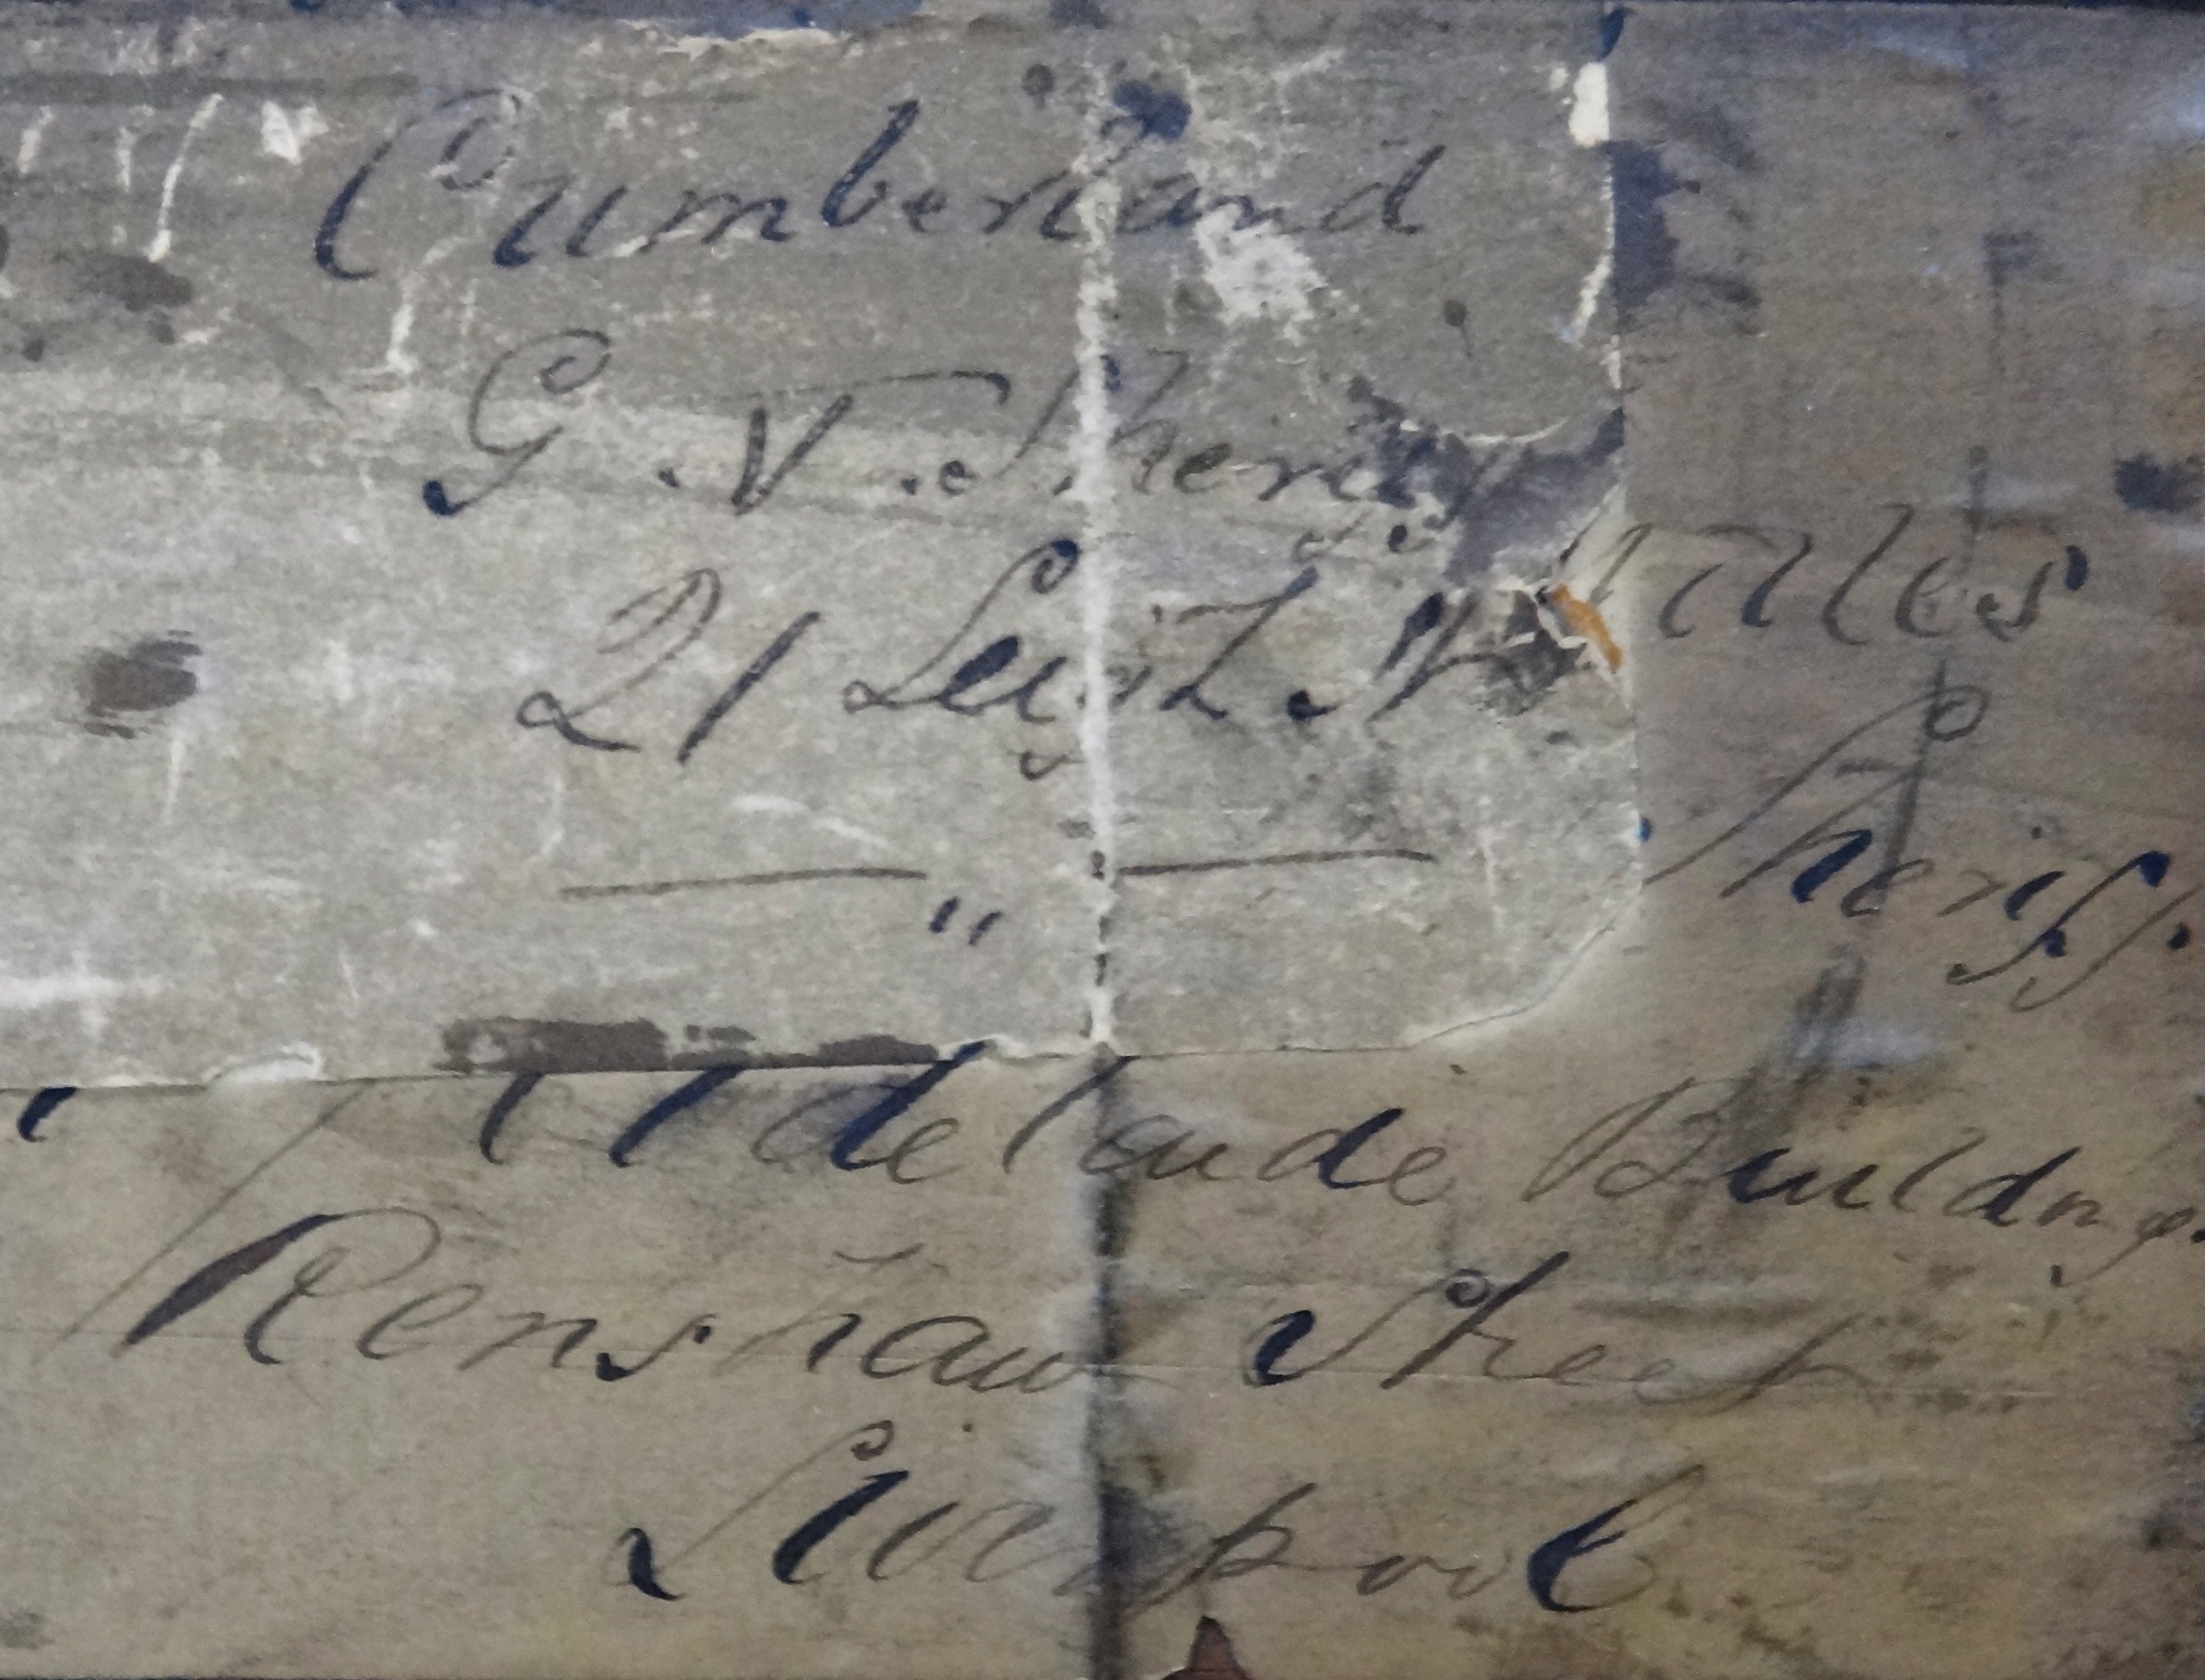 Cumberland
G. V. Sheriff
21 Leigh St
"
Sheriff.
Adelaide Buildngs.
Renshaw Street
Liverpool